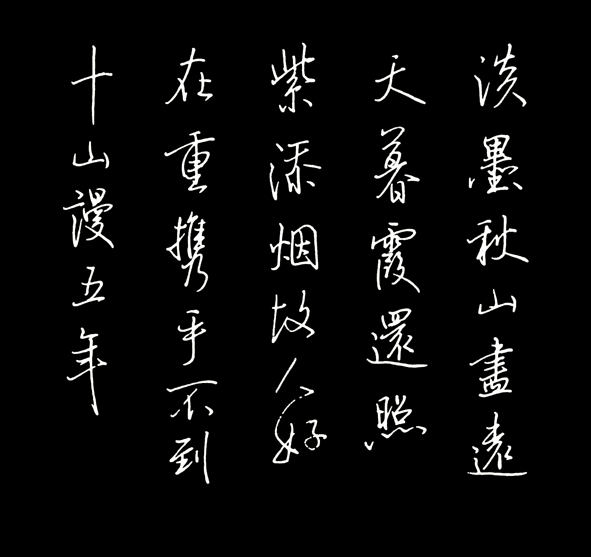 淡墨秋山畫遠
天暮霞還照
紫添烟故人好
在重携手不到
十山謾五年